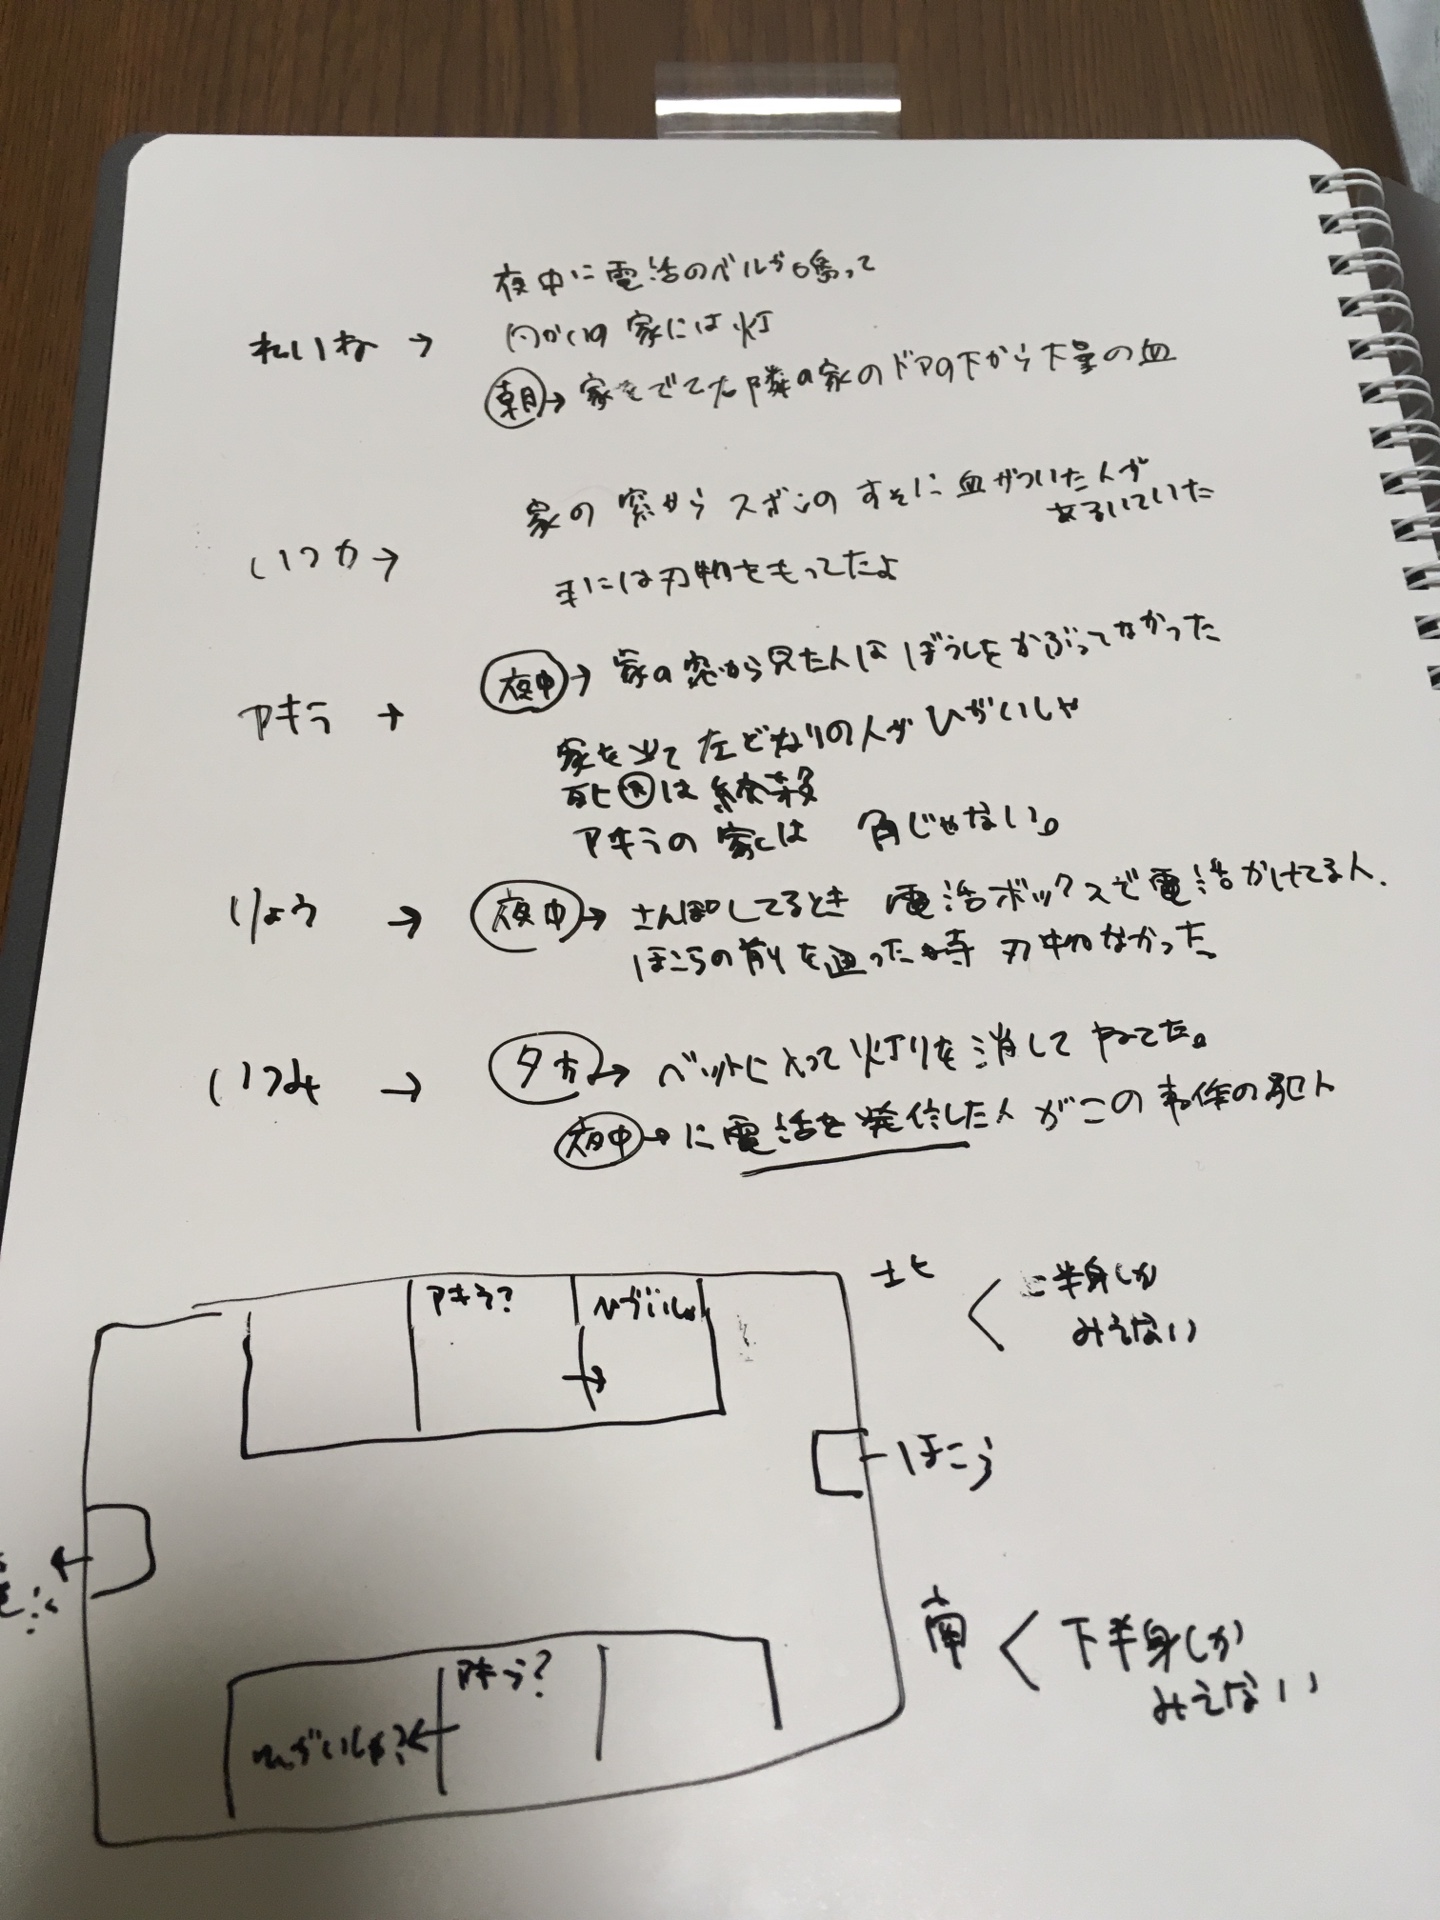 夜中に電話のベルが鳴って
れいな → 向かいの家には灯
朝→ 家をでて右隣の家のドアの下から大量の血
家の窓からズボンのすそに血がついた人が
あるいていた
いつか→
手には刃物をもってたよ
夜中→ 家の窓から見た人はぼうしをかぶってなかった
アキラ →
家を出て左どなりの人がひがいしゃ
死因は絞殺
アキラの家は 角じゃない。
りょう → 夜中→ さんぽしてるとき 電話ボックスで電話かけてる人.
ほこらの前を通った時 刃物なかった
いつみ → 夕方→ ベットに入って灯りを消してねてた。
夜中→に電話を発信した人がこの事件の犯人
北
アキラ? ひがいしゃ
半身しか
みえない
ほこら
南 下半身しか
みえない
アキラ?
ひがいしゃ?